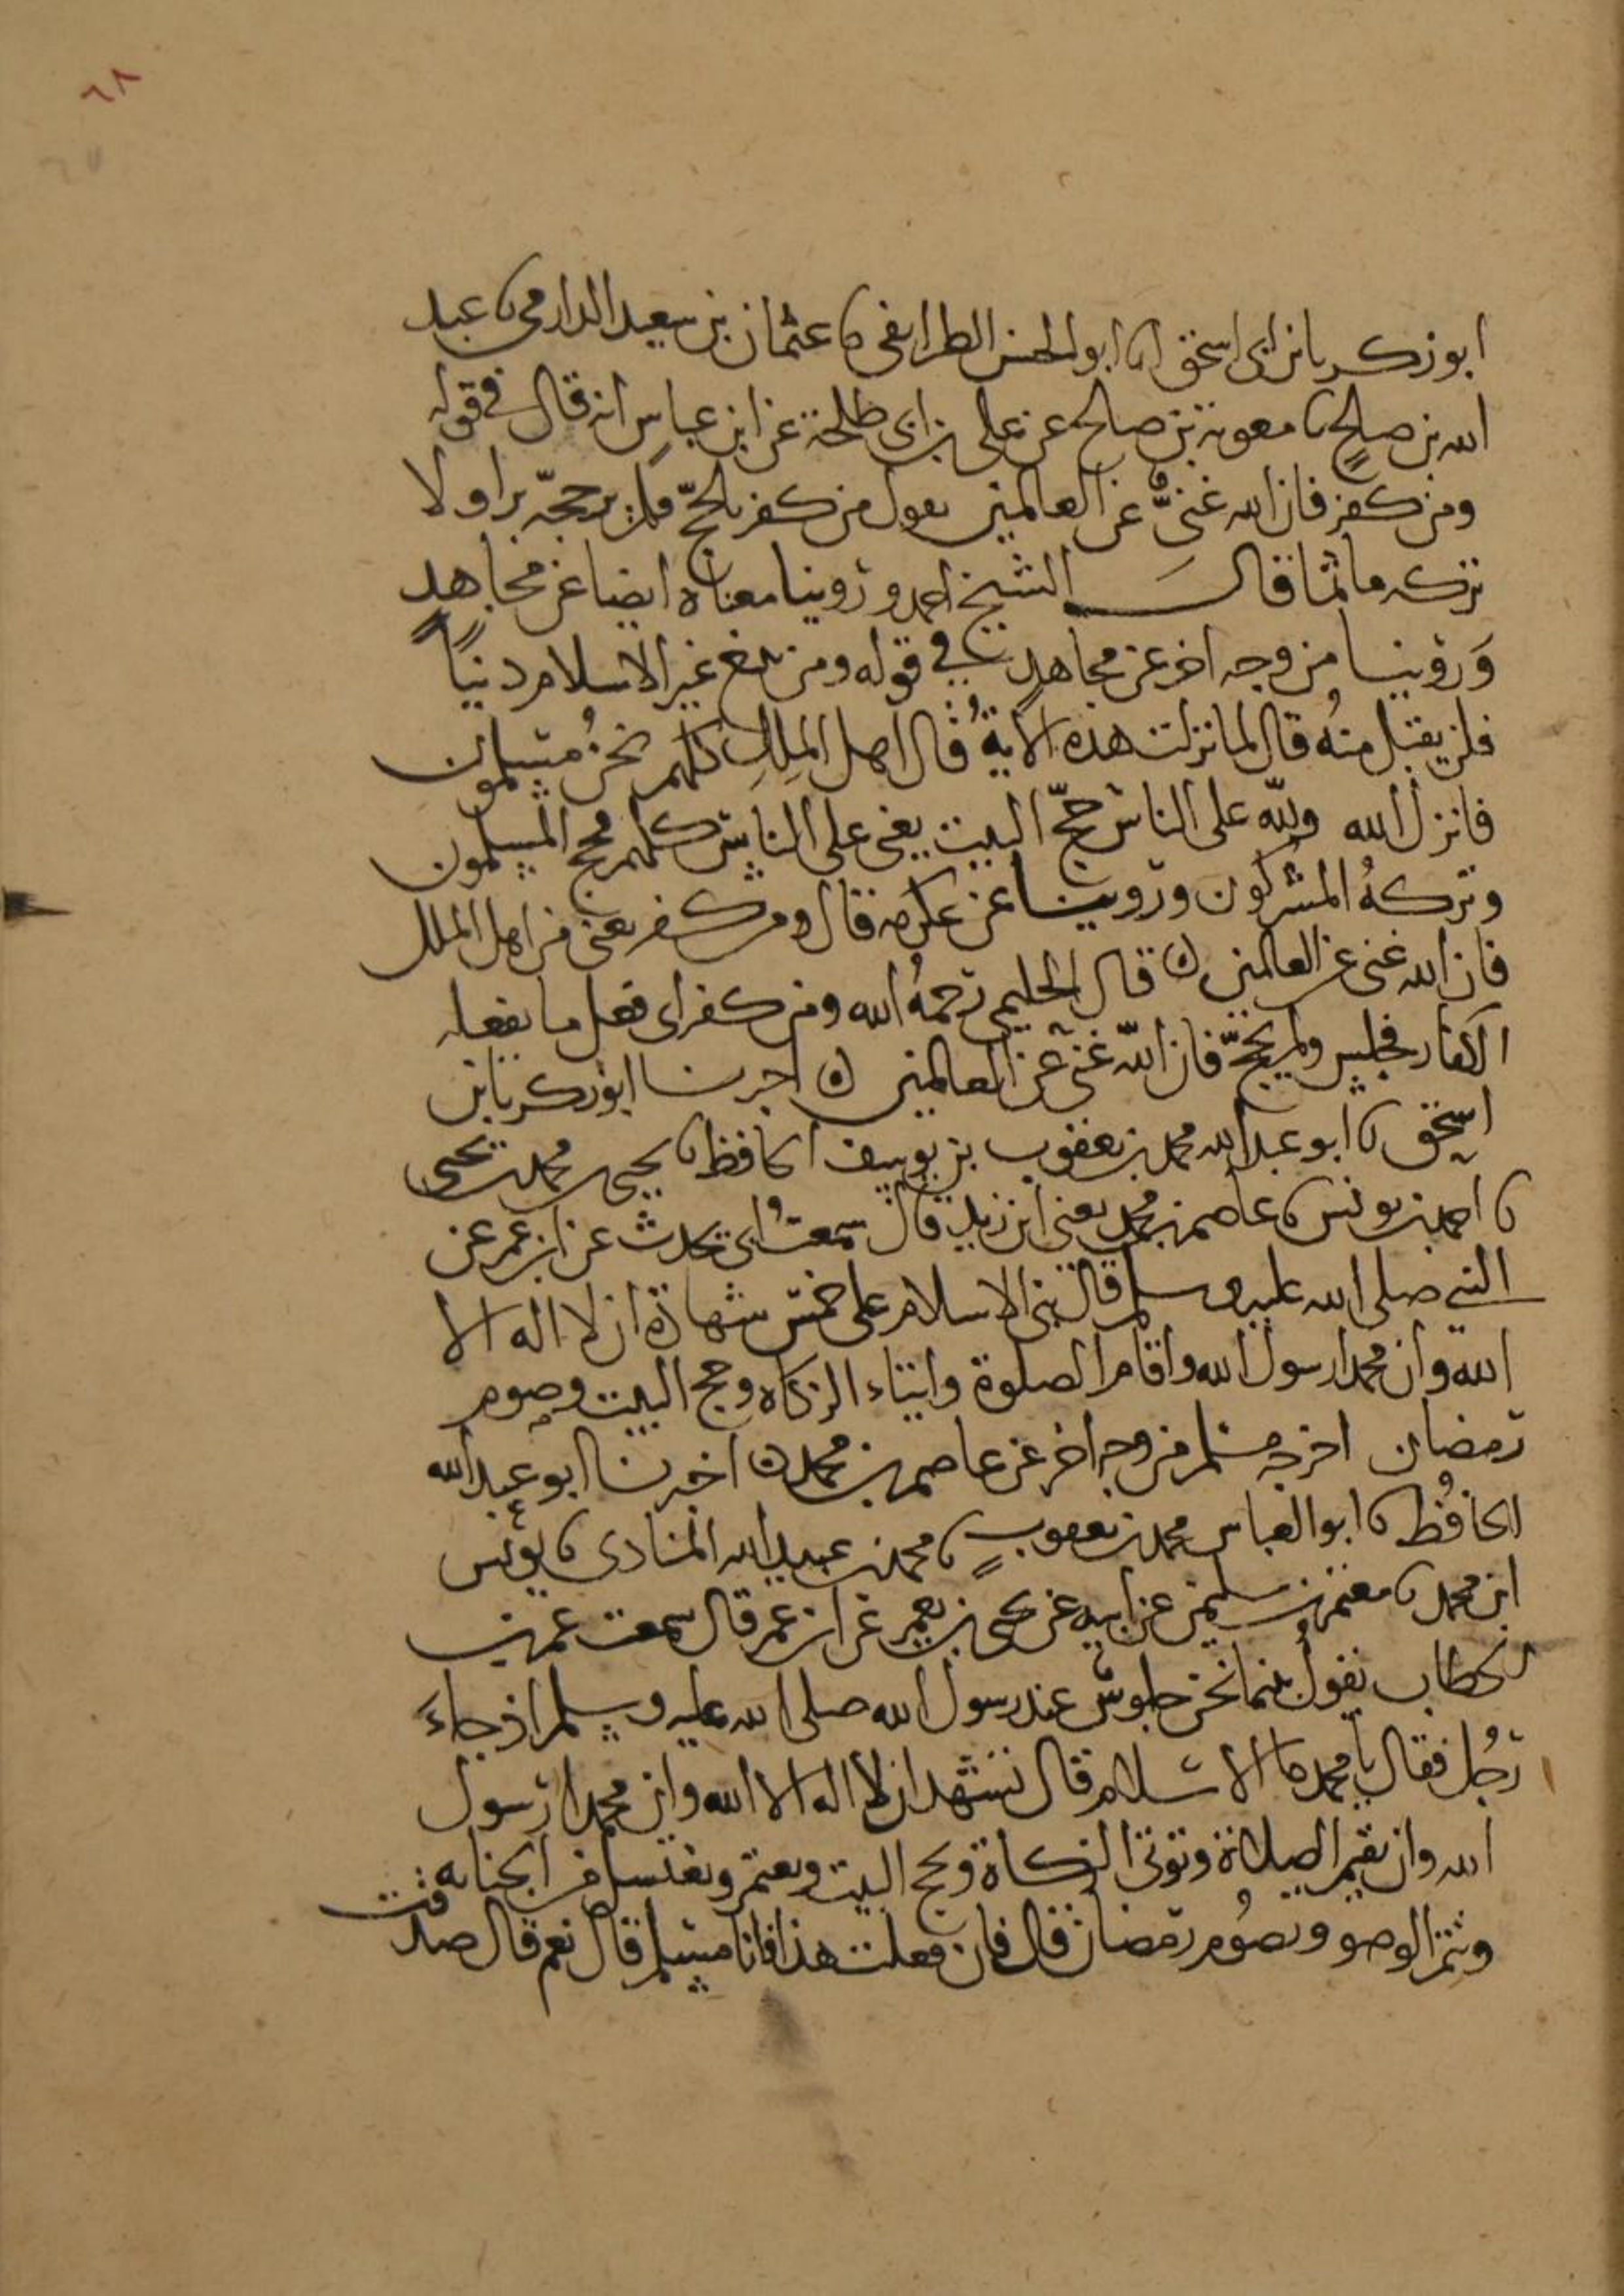 ٦٨
ابو زكريا بن ابى اسحق انا ابو الحسن الطرايفى نا عثمان بن سعيد الدارمى نا عبد
الله بن صلح نا معوية بن صالح عن على بن ابى طلحة عن ابن عباس انه قال فى قوله
ومن كفر فان الله غنى عن العالمين يقول من كفر بالحج فلم ير حجه برا ولا
تركه ماثما قال الشيخ احمد وروينا معناه ايضا عن مجاهد
وروينا من وجه اخر عن مجاهد فى قوله ومن يبتغ غير الاسلام دينا
فلن يقبل منه قال لما نزلت هذه الاية قال اهل الملل كلهم نحن مسلمون
فانزل الله ولله على الناس حج البيت يعنى على الناس كلهم فحج المسلمون
وتركه المشركون وروينا عن عكرمه قال ومن كفر يعنى من اهل الملل
فان الله غنى عن العالمين ه قال الحليمى رحمه الله ومن كفر اى فعل ما يفعله
الكفار فجلس ولم يحج فان الله غنى عن العالمين ه اخبرنا ابو زكريا بن
اسحق نا ابو عبد الله محمد بن يعقوب بن يوسف الحافظ نا يحيى بن محمد بن يحيى
نا احمد بن يونس نا عاصم بن محمد يعنى ابن زيد قال سمعت ابى يحدث عن ابن عمر عن
النبى صلى الله عليه وسلم قال بنى الاسلام على خمس شهادة ان لا اله الا
الله وان محمدا رسول الله واقام الصلوة وايتاء الزكاه وحج البيت وصوم
رمضان اخرجه مسلم من وجه اخر عن عاصم بن محمد ه اخبرنا ابو عبد الله
الحافظ نا ابو العباس محمد بن يعقوب نا محمد بن عبيد الله المنادى نا يونس
ابن محمد نا معتمر بن سليمن عن ابيه عن يحيى بن يعمر عن ابن عمر قال سمعت عمر بن
الخطاب يقول بينما نحن جلوس عند رسول الله صلى الله عليه وسلم اذ جاء
رجل فقال يا محمد ما الاسلام قال تشهد ان لا اله الا الله وان محمدا رسول
الله وان تقيم الصلاة وتوتى الزكاة وتحج البيت وتعتمر وتغتسل من الجنابه
وتتم الوضو وتصوم رمضان قال فان فعلت هذا فانا مسلم قال نعم قال صدقت